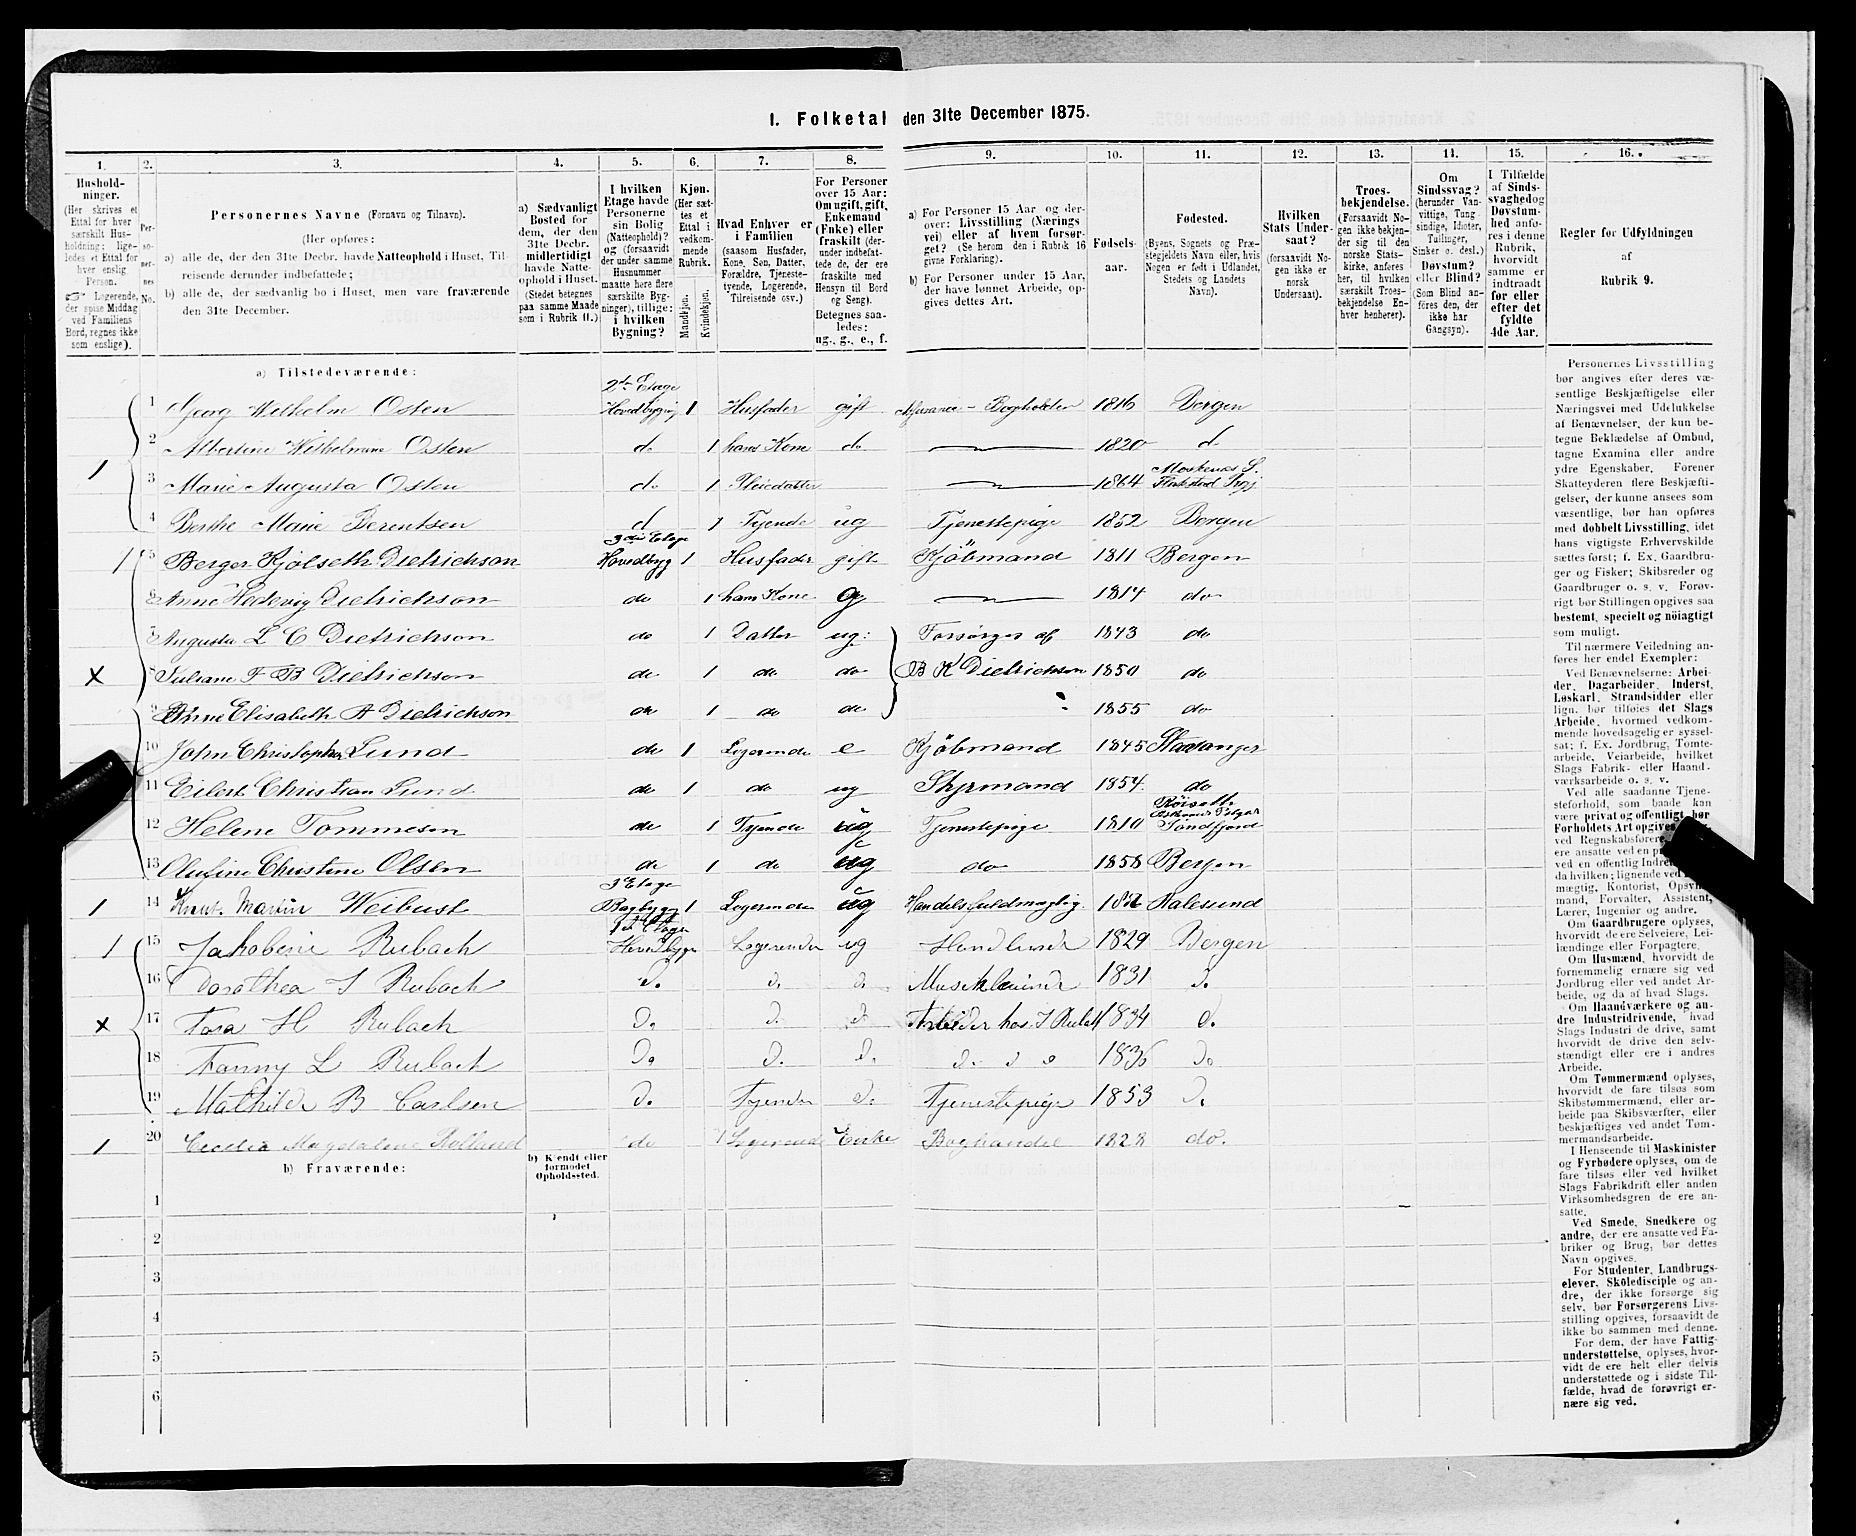 1. Folketal den 31te December 1875.
1. 2. 3. 4. 5. 6. 7. 8. 9. 10. 11. 12. 13. 14. 15. 16.
Hushold-
ninger.
(Her skrives et
Ettal for hver
særskilt Hus-
holdning; lige-
ledes et Ettal for
hver enslig
Person.
☞ Logerende,
der spise Middag
ved Familiens
Bord, regnes ikke
som enslige).
Per-
so-
ner-
nes
No.
Personernes Navne (Fornavn og Tilnavn).
(Her opføres:
a) alle de, der den 31te Decbr. havde Natteophold i Huset, Til-
reisende derunder indbefattede;
b) alle de, der sædvanlig bo i Huset, men vare fraværende
den 31te December.
a) Sædvanligt
Bosted for
dem, der den
31te Decbr.
midlertidigt
havde Natte-
ophold i Huset.
(Stedet betegnes
paa samme Maade
som i Rubrik 11.)
I hvilken
Etage havde
Personerne
sin Bolig
(Natteophold)?
og (forsaavidt
der under samme
Husnummer
maatte høre flere
særskilte Byg-
ninger), tillige:
i hvilken
Bygning?
Kjøn.
(Her sæt-
tes et
Ettal i
vedkom-
mende
Rubrik.
Mandkjøn.
Kvindekjøn.
Hvad Enhver er
i Familien
(saasom Husfader,
Kone, Søn, Datter,
Forældre, Tjeneste-
tyende, Logerende,
Tilreisende osv.)
For Personer
over 15 Aar:
Om ugift, gift,
Enkemand
(Enke) eller
fraskilt (der-
under indbefat-
tede de, der ere
fraskilte med
Hensyn til Bord
og Seng).
Betegnes saa-
ledes:
ug., g., e., f.
a) For Personer 15 Aar og der-
over: Livsstilling (Nærings
vei) eller af hvem forsør-
get? (Se herom den i Rubrik 16
givne Forklaring).
b) For Personer under 15 Aar,
der have lønnet Arbeide, op-
gives dettes Art.
Fødsels-
aar.
Fødested.
(Byens, Sognets og Præ-
stegjeldets Navn eller, hvis
Nogen er født i Udlandet,
Stedets og Landets
Navn).
Hvilken
Stats Under-
saat?
(forsaavidt No-
gen ikke er
norsk
Undersaat).
Troes-
bekjendelse.
(Forsaavidt No-
gen ikke bekjen-
der sig til den
norske Stats-
kirke, anføres
her, til hvilken
særskilt Troes-
bekjendelse En-
hver henhører).
Om
Sindssvag?
(herunder Van-
vittige, Tung-
sindige, Idioter,
Tullinger,
Sinker o. desl.)
Døvstum?
eller Blind?
(Som Blind an-
føres den, der
ikke har
Gangsyn).
I Tilfælde
af Sinds-
svaghed og
Døvstum-
hed anfø-
res i denne
Rubrik,
hvorvidt
samme er
indtraadt
før eller
efter det
fyldte
4de Aar.
Regler for Udfyldningen
af
Rubrik 9.
a) Tilstedeværende:
2den Etage
1 Georg Wilhelm Osten Hovedbygning 1 Husfader gift Assurance-Bogholder 1816 Bergen
2 Albertine Wilhelmine Osten do 1 hans Kone do 1820 d
1 3 Marie Augusta Osten do 1 Pleiedatter 1864 Moskenæs S. Flakstad Prgj
4 Berthe Marie Berentsen d 1 Tyende ug Tjenestepige 1852 Bergen
3die Etage
1 5 Berger Kjølseth Dietrichson Hovedbyg 1 Husfader gift Kjøbmand 1811 Bergen
6 Anne Hedevig Dietrichson do 1 hans Kone g 1814 do
7 Augusta L C Dietrichson do 1 Datter ug: Forsørges af 1843 do
X 8 Juliane F B Dietrichson do 1 do do B K Dietrichson 1850 do
9 Anne Elisabeth A Dietrichson do 1 do do 1855 do
10 John Christopher Lund do 1 Logerende e Kjøbmand 1845 Stavanger
11 Eilert Christian Lund do 1 do ug Styrmand 1854 do
12 Helene Tommesen do 1 Tyende ug Tjenestepige 1810 Søndfjord
13 Olufine Christine Olsen do 1 do ug do 1858 Bergen
3 Etage
1 14 Knut Martin Weibust Bagbyg 1 Logerende ug Handelsfuldmægtig Aalesund
1st Etage
1 15 Jakobine Rubach Hovedbygn Logerende ug Handlende 1829 Bergen
16 Dorothea J Rubach do d. d. Musiklærerinde 1831 d.
X 17 Thora H Rubach Do d. d. Arbeider hos J Rubach 1834 d.
18 Fanny L Rubach Do D. d. d. d o 1836 Do
19 Mathilde B Carlsen D. Tyende d. Tjenestepige 1853 d.
1 20 Cecelia Magdalene Rolland do 1 Logerende Enke Boghandel 1828 do.
b) Fraværende:
b) Kjendt eller
formodet
Opholdssted.
1
2
3
4
5
6
Personernes Livsstilling
bør angives efter deres væ-
sentlige Beskjæftigelse eller
Næringsvei med Udelukkelse
af Benævnelser, der kun be-
tegne Beklædelse af Ombud,
tagne Examina eller andre
ydre Egenskaber. Forener
Skatteyderen flere Beskjæfti-
gelser, der kunne ansees som
væsentlige, bør han opføres
med dobbelt Livsstilling, idet
hans vigtigste Erhvervskilde
sættes først; f. Ex. Gaardbru-
ger og Fisker; Skibsreder og
Gaardbruger o. s. v. Forøv-
rigt bør Stillingen opgives saa
bestemt, specielt og nöiagtigt
som muligt.
Til nærmere Veiledning an-
føres her endel Exempler:
Ved Benævnelserne: Arbei-
der, Dagarbeider, Inderst,
Løskarl, Strandsidder eller
lign. bør tilføies det Slags
Arbeide, hvormed vedkom-
mende hovedsagelig er syssel-
sat; f. Ex. Jordbrug, Tomte-
arbeide, Veiarbeide, hvilket
Slags Fabrik- eller Haand-
værksarbeide o. s. v.
Ved alle saadanne Tjene-
steforhold, som baade kan
være privat og offentligt, bør
Forholdets Art opgives
ved Regnskabsførere,
ere ansatte ved en
ved en offentlig
da hvilken; lignende ved
mægtig, Kontorist, Opsyns-
mand, Forvalter, Assistent,
Lærer, Ingeniør og andre.
Om Gaardbrugere oplyses,
hvorvidt de ere Selveiere, Lei-
lændinge eller Forpagtere.
Om Husmænd, hvorvidt de
fornemmelig ernære sig ved
Jordbrug eller ved andet Ar-
beide, og da af hvad Slags.
Om Haandværkere og an-
dre Industridrivende, hvad
Slags Industri de drive, samt
hvorvidt de drive den selv-
stændigt eller ere i andres
Arbeide.
Om Tømmermænd oplyses,
hvorvidt de fare tilsøs som
Skibstømmermænd, eller ar-
beide paa Skibsværfter, eller
beskjæftiges ved andet Tøm-
mermandsarbeide.
I Henseende til Maskinister
og Fyrbødere oplyses, om de
fare tilsøs eller ved hvilket
Slags Fabrikdrift eller anden
Virksomhedsgren de ere an-
satte.
Ved Smede, Snedkere og
andre, der ere ansatte ved Fa-
briker og Brug, bør dettes
Navn opgives.
For Studenter, Landbrugs-
elever, Skoledisciple og an-
dre, der ikke forsørge sig
selv, bør Forsørgerens Livs-
stilling opgives, forsaavidt de
ikke bo sammen med denne.
For dem, der have Fattig-
understøttelse, oplyses, hvor-
vidt de ere helt eller delvis
understøttede og i sidste Til-
fælde, hvad de forøvrigt er-
nære sig ved.